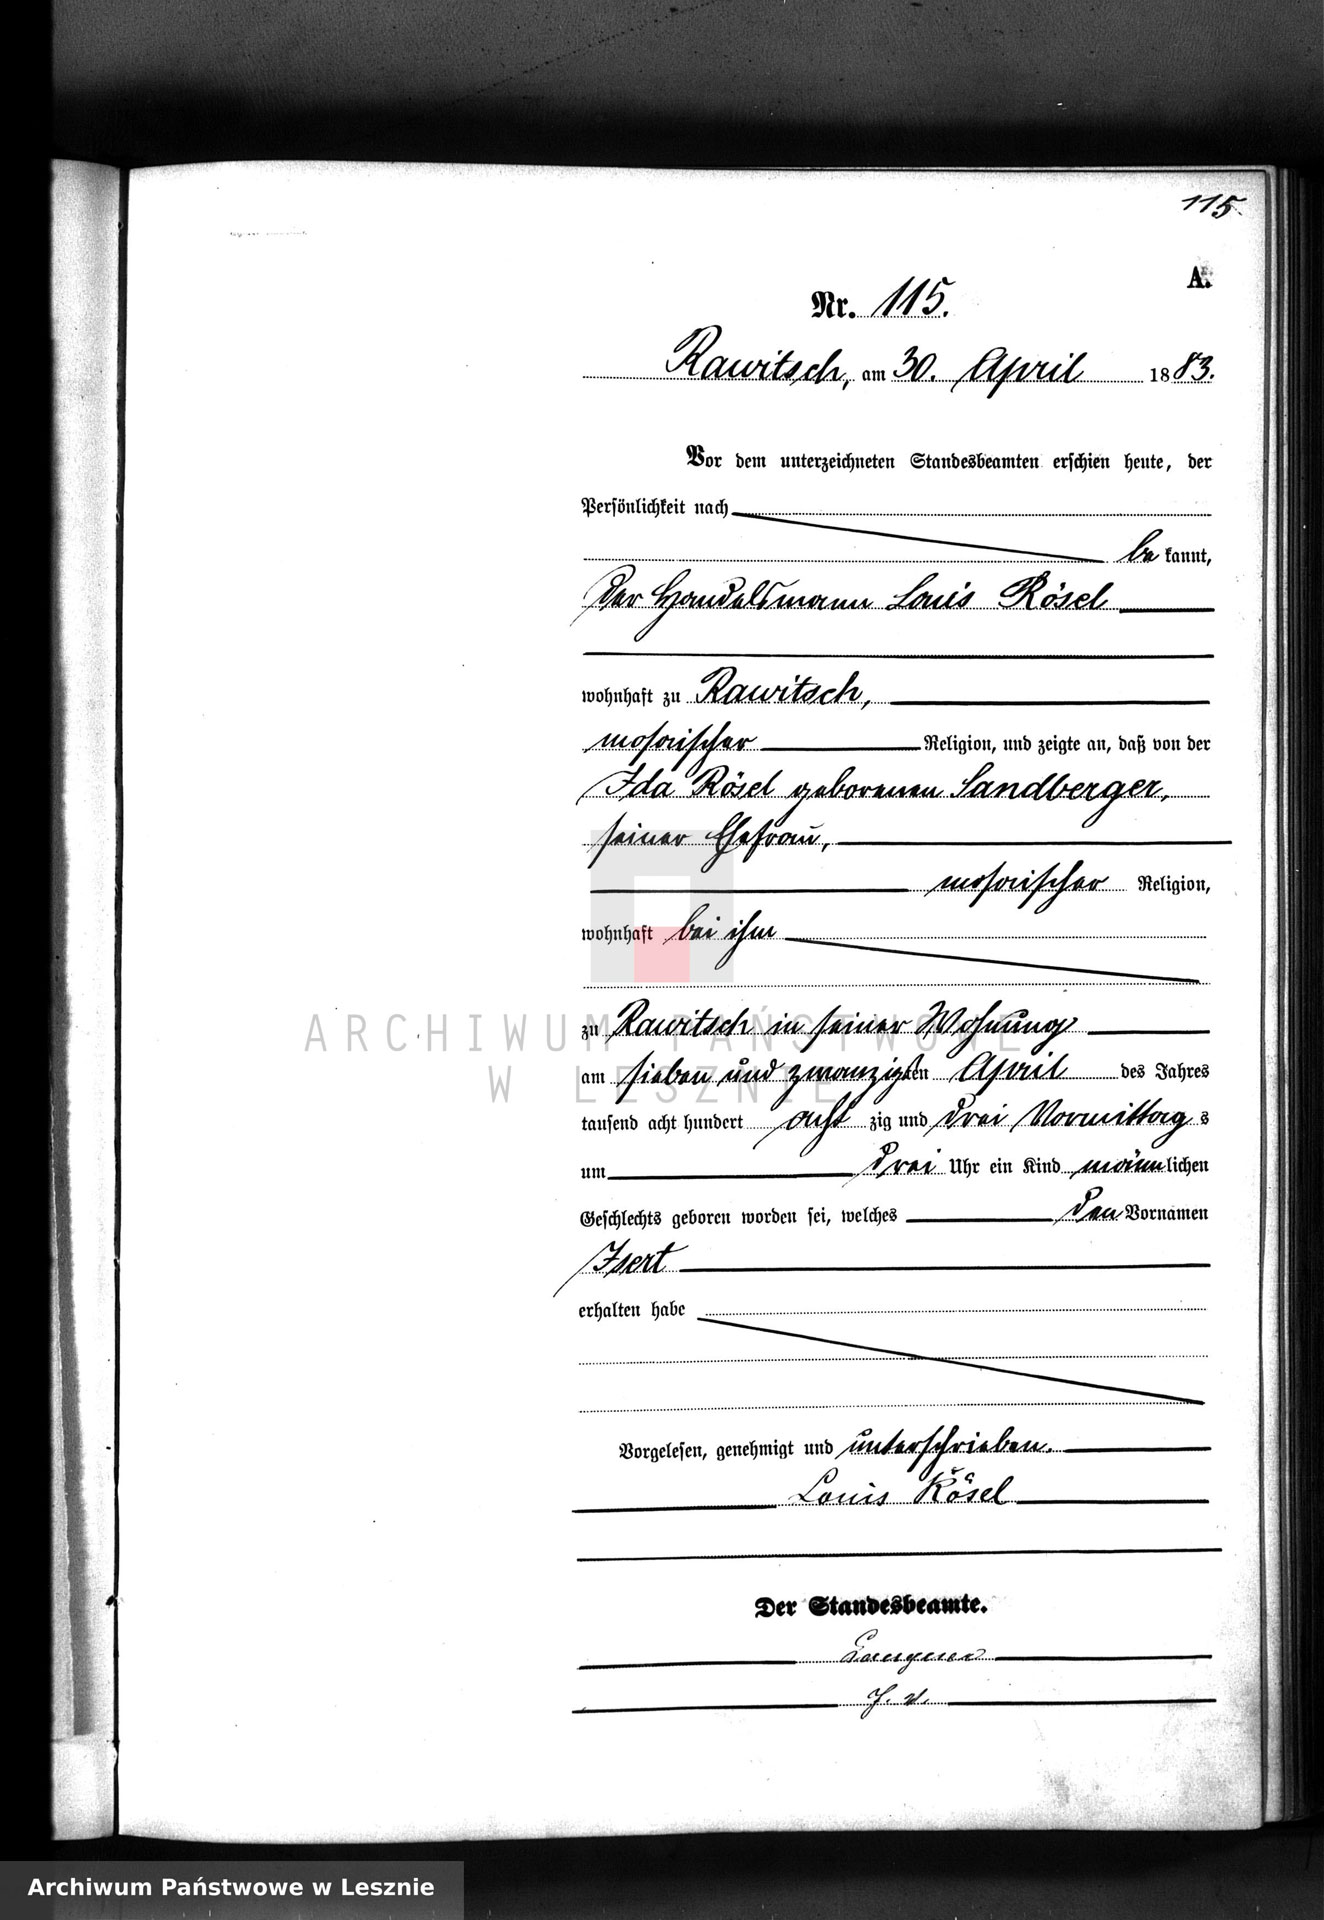 115.
A.
Nr. 115.
Rawitsch, am 30. April 1883.
Vor dem unterzeichneten Standesbeamten erschien heute, der
Persönlichkeit nach
be kannt,
der Handelsmann Louis Rösel
wohnhaft zu Rawitsch,
mosaischer Religion, und zeigte an, daß von der
Ida Rösel geborenen Sandberger,
seiner Ehefrau,
mosaischer Religion,
wohnhaft bei ihm
zu Rawitsch in seiner Wohnung
am sieben und zwanzigsten April des Jahres
tausend acht hundert acht zig und drei Vormittag s
um drei Uhr ein Kind männlichen
Geschlechts geboren worden sei, welches den Vornamen
Isert
erhalten habe
Vorgelesen, genehmigt und unterschrieben.
Louis Rösel
Der Standesbeamte.
Langner
J. V.
ARCHIWUM PAŃSTWOWE
W LESZNIE
Archiwum Państwowe w Lesznie